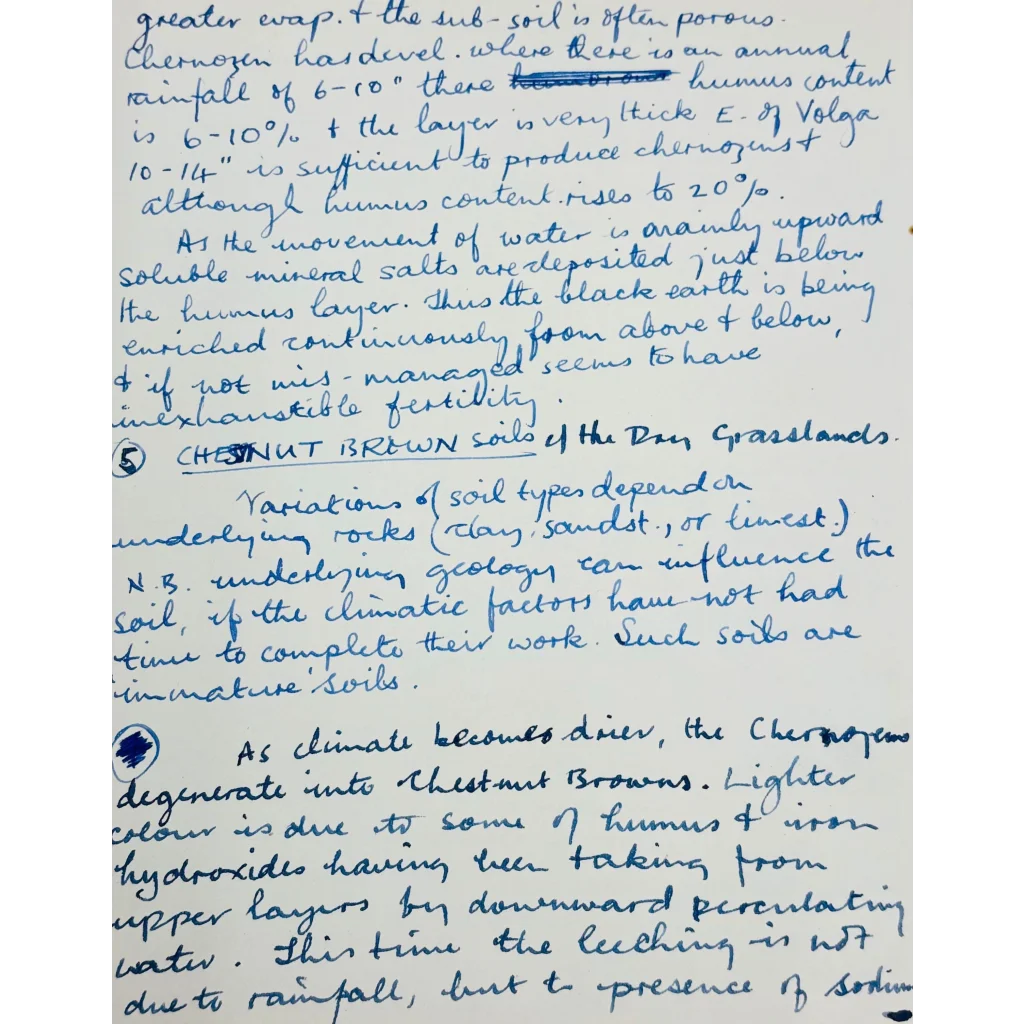 greater evap. & the sub-soil is often porous.
Chernozen has devel. where there is an annual
rainfall of 6-10" there humus content
is 6-10% & the layer is very thick E. of Volga
10-14" is sufficient to produce chernozens &
although humus content rises to 20%.
As the movement of water is mainly upward
soluble mineral salts are deposited just below
the humus layer. Thus the black earth is being
enriched continuously from above & below,
& if not mis-managed seems to have
inexhaustible fertility.
5 CHESTNUT BROWN soils of the Dry Grasslands.
Variations of soil types depend on
underlying rocks (clay, sandst., or limest.)
N.B. underlying geology can influence the
soil, if the climatic factors have not had
time to complete their work. Such soils are
'immature' soils.
As climate becomes drier, the Chernozems
degenerate into Chestnut Browns. Lighter
colour is due to some of humus & iron
hydroxides having been taking from
upper layers by downward perculating
water. This time the leeching is not
due to rainfall, but to presence of sodium